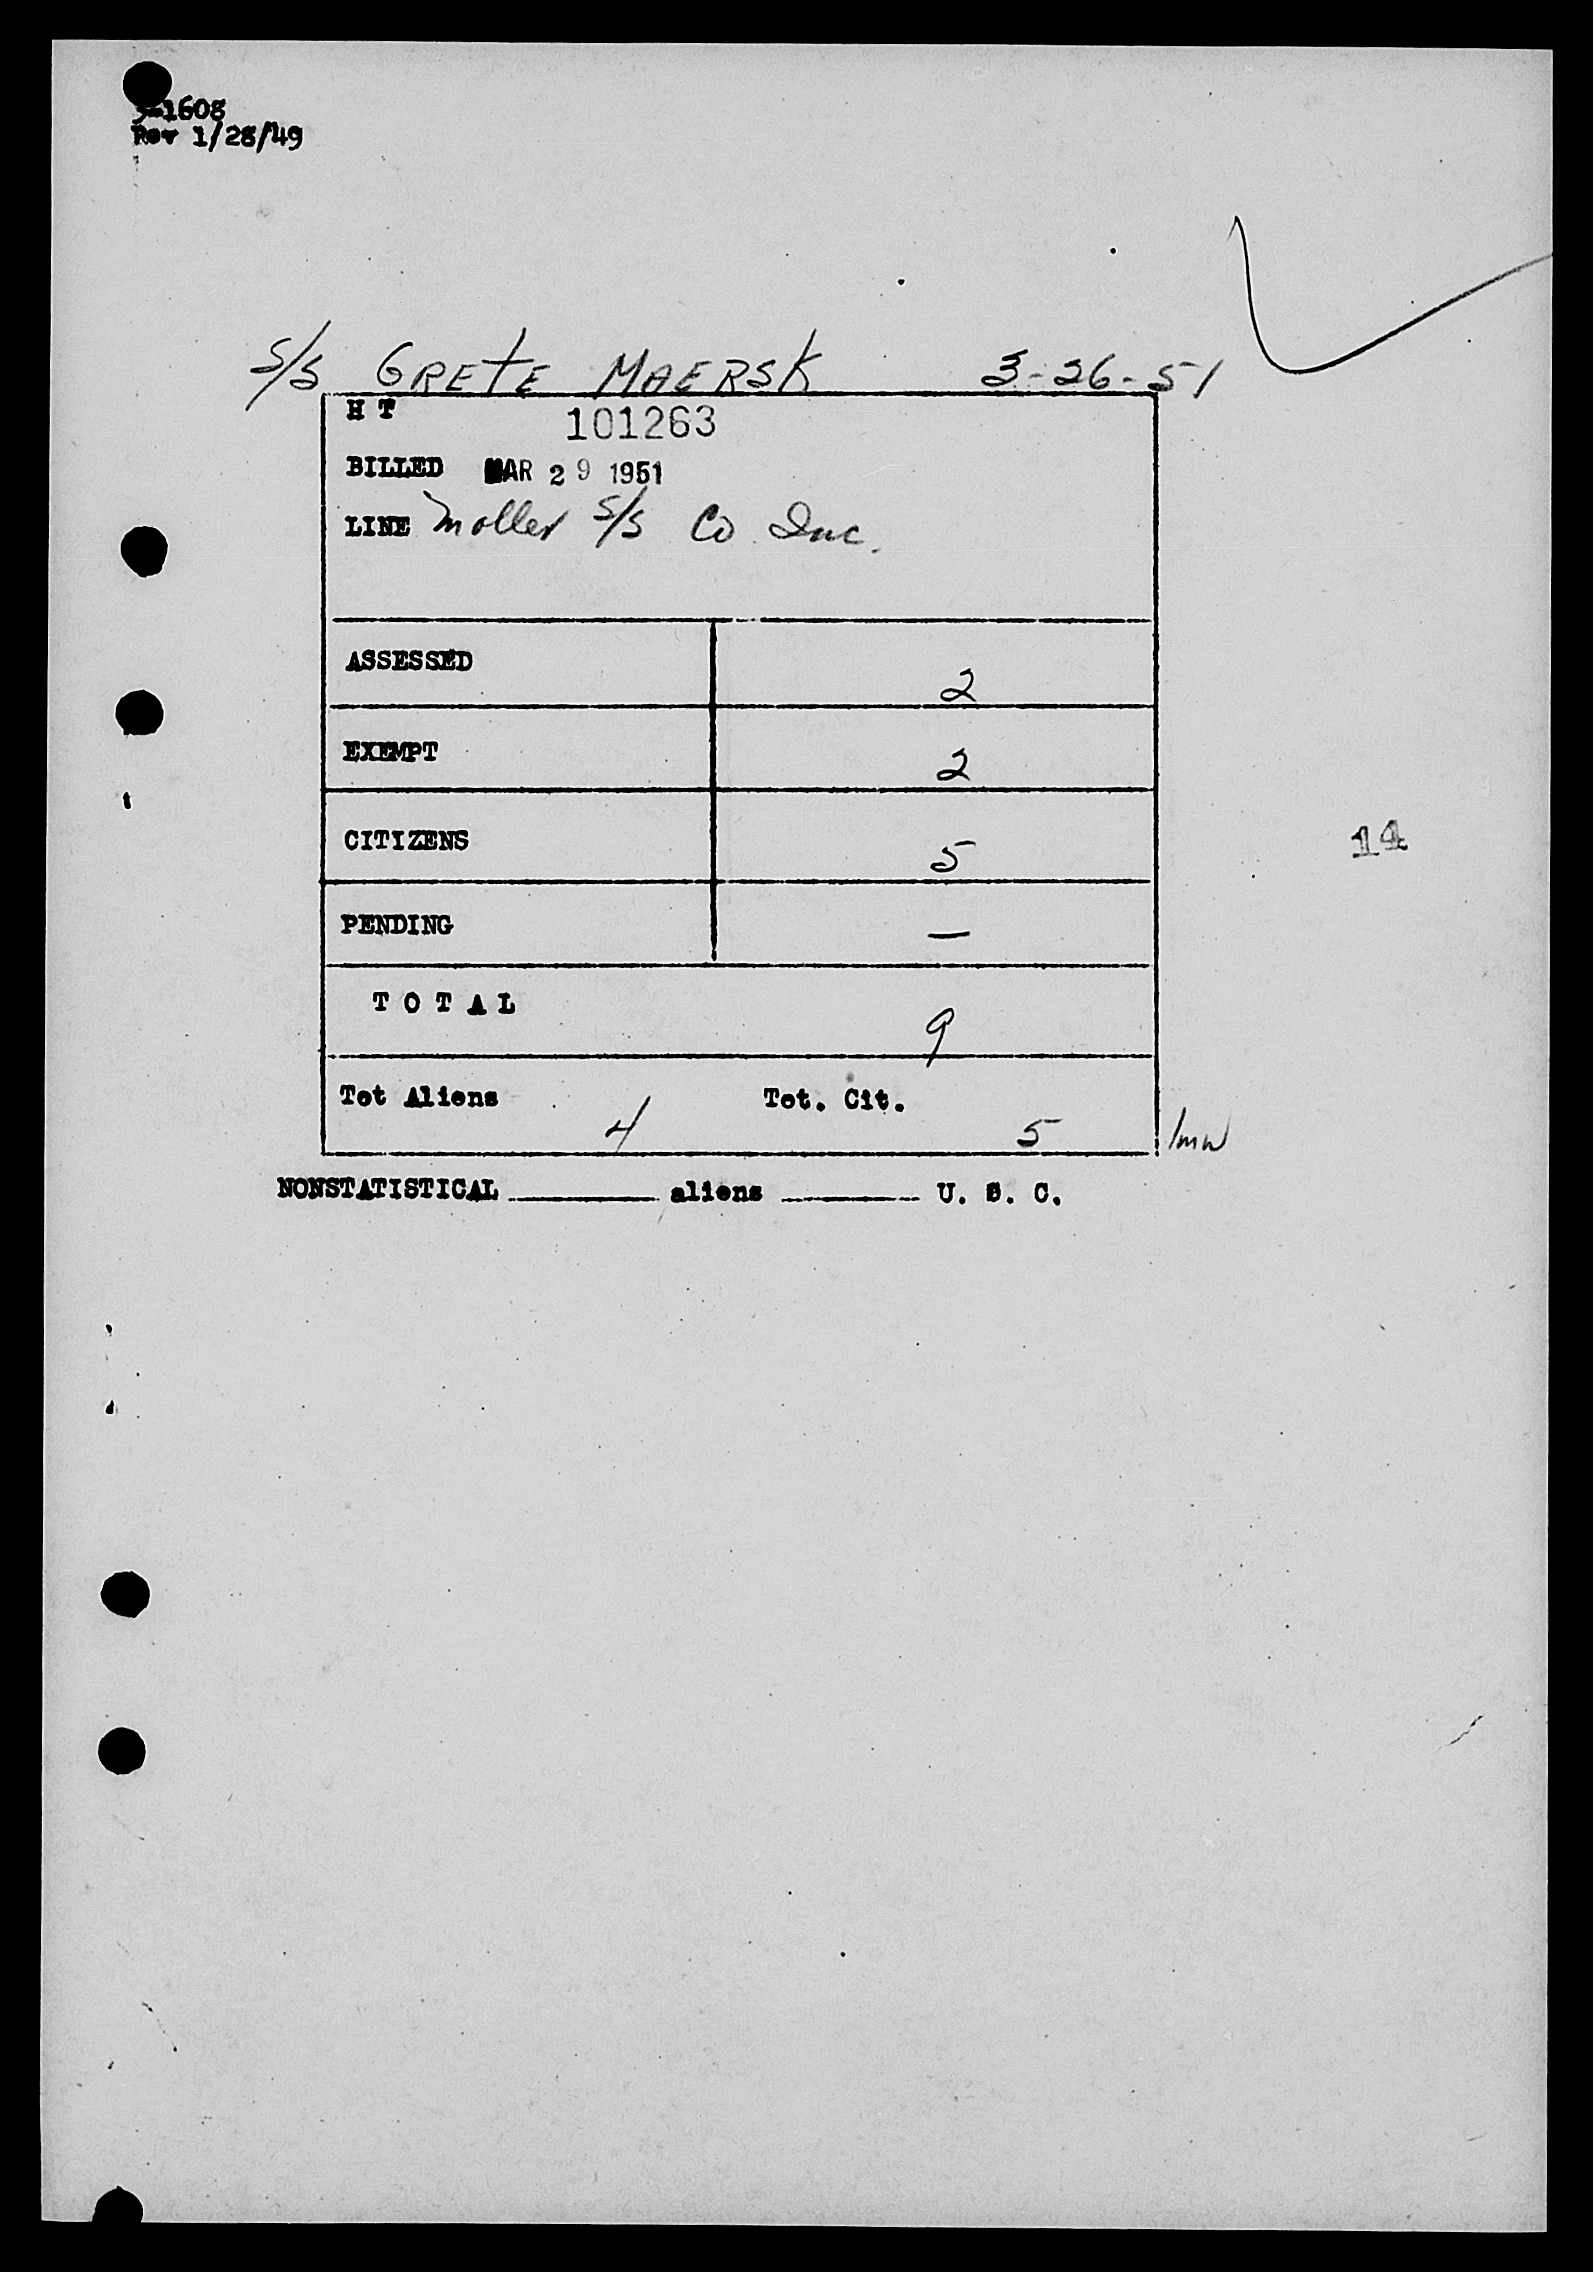 3-1608
Rev 1/28/49
S/S GRETE MAERSK 3-26-51
H T 101263
BILLED MAR 29 1951
LINE Moller S/S Co Inc.
ASSESSED 2
EXEMPT 2
CITIZENS 5
14
PENDING —
TOTAL 9
Tot Aliens 4 Tot. Cit. 5
NONSTATISTICAL ______ aliens ______ U. S. C.